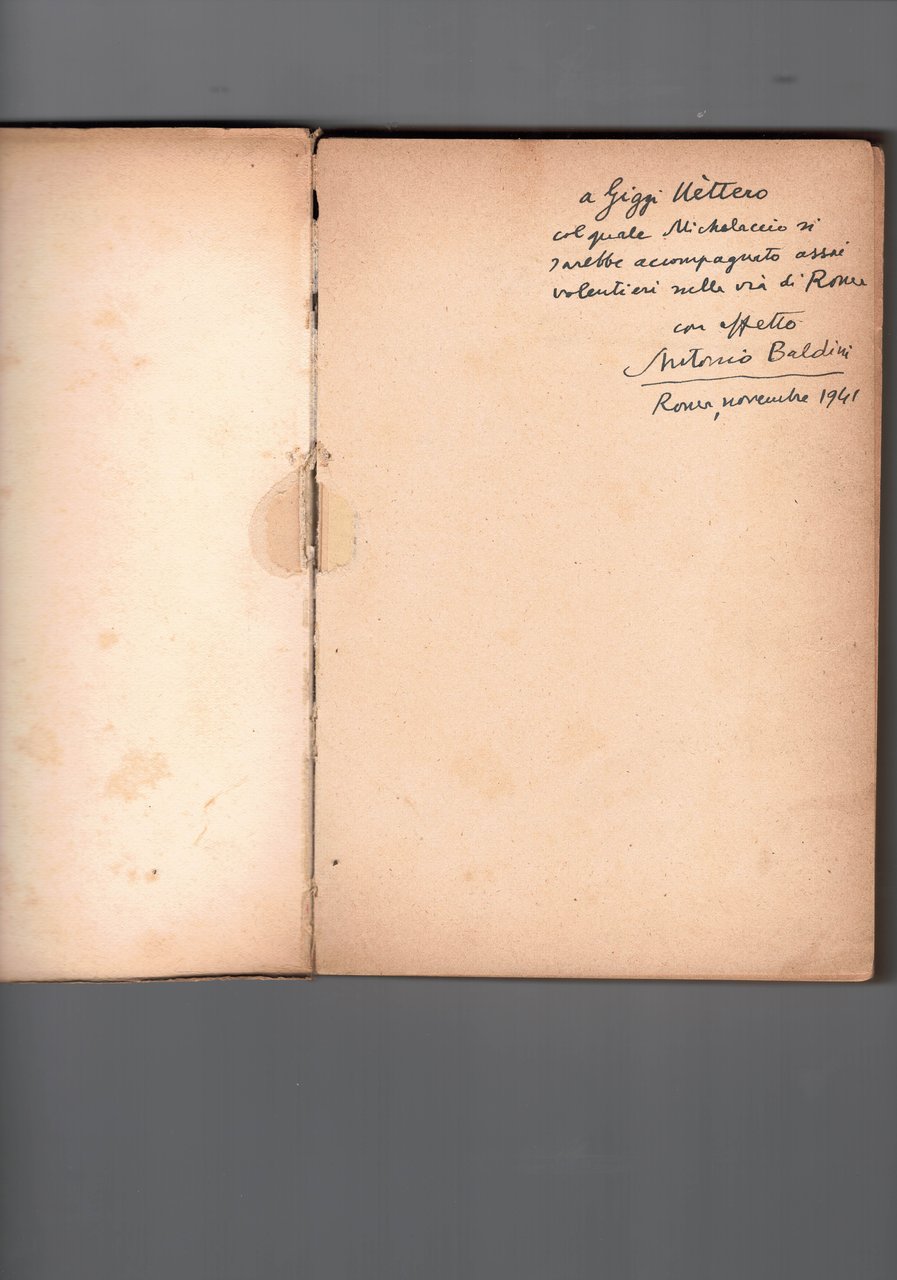 a Giggi Uèttero
col quale Michelaccio si
sarebbe accompagnato assai
volentieri nella via di Roma
con affetto
Antonio Baldini
Roma, novembre 1941